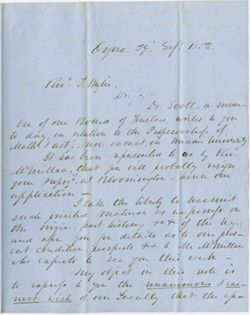 Oxford 29 Sep. 1852
Rev. T. Wylie
Dr. Sir.
Dr. Scott, a mem-
ber of our Board of Trustees, writes to you
to day, in relation to the Professorship of
Math & Ast, now vacant, in Miami University
It has been represented to us by Rev.
McMillan, that you will probably resign
your Profsp. at Bloomington - hence our
application -
I take the liberty to transmit
such printed matter as expounds
the origin, past history &c of the
and refer you for details as to our pres-
ent condition prospects &c to Mr McMillan
who expects to see you this week -
My object in this note is
to express to you the unanimous & ear-
nest wish of our Faculty that the